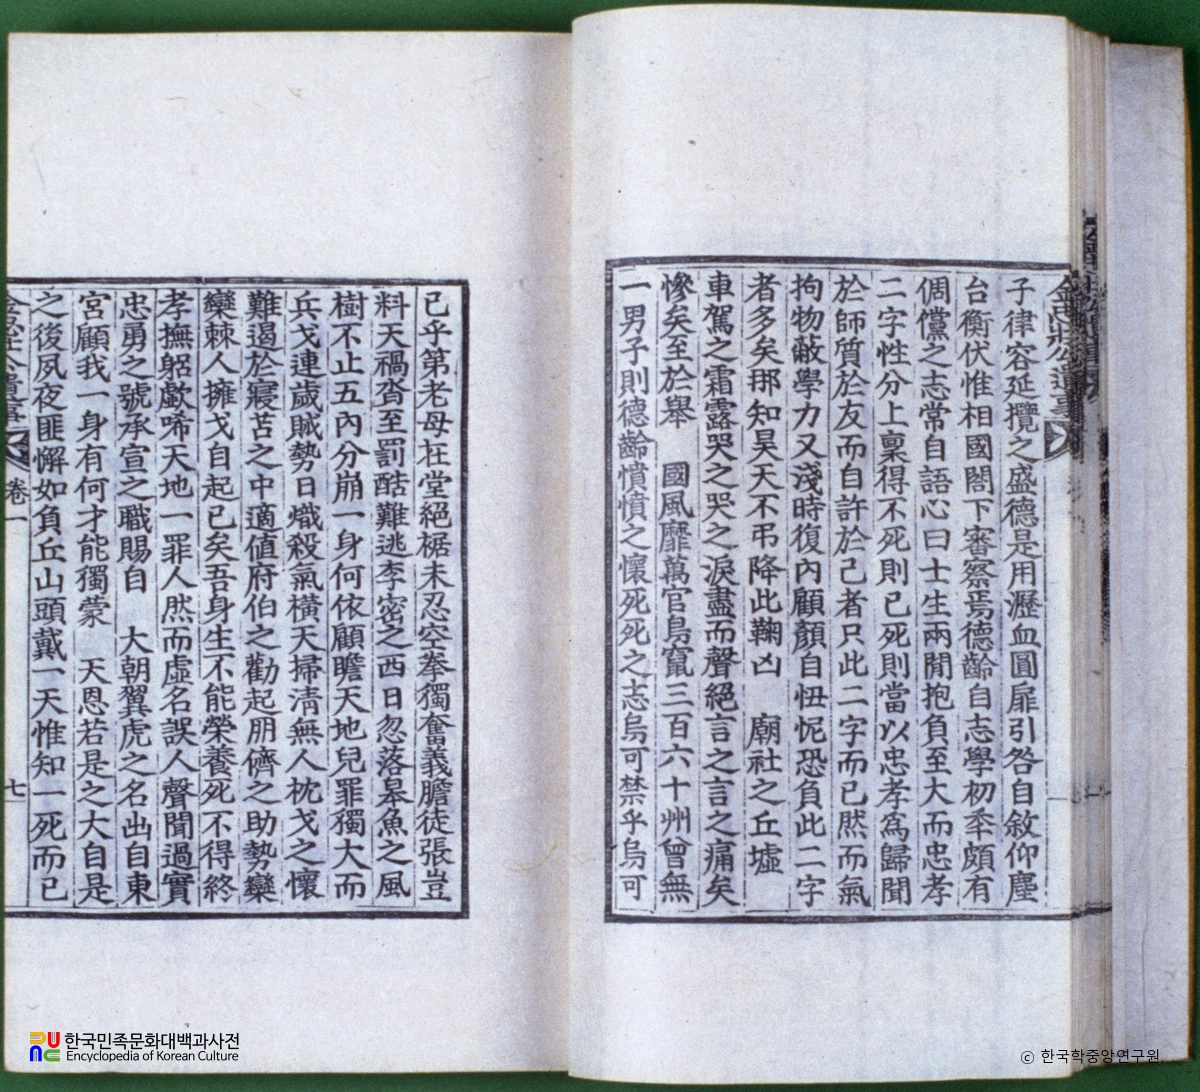 金忠壯公遺事
子律容延攬之盛德是用瀝血圓扉引咎自敘仰塵
台衡伏惟相國閤下審察焉德齡自志學初秊頗有
倜儻之志常自語心曰士生兩間抱負至大而忠孝
二字性分上稟得不死則已死則當以忠孝爲歸聞
於師質於友而自許於己者只此二字而已然而氣
拘物蔽學力又淺時復內顧顏自忸怩恐負此二字
者多矣那知昊天不弔降此鞠凶 廟社之丘墟
車駕之霜露哭之哭之淚盡而聲絕言之言之痛矣
慘矣至於舉 國風靡萬官鳥竄三百六十州曾無
一男子則德齡憤憤之懷死死之志烏可禁乎烏可
已乎第老母在堂絕裾未忍空拳獨奮義膽徒張豈
料天禍沓至罰酷難逃李密之西日忽落皋魚之風
樹不止五內分崩一身何依顧瞻天地兒罪獨大而
兵戈連歲賊勢日熾殺氣橫天掃淸無人枕戈之懷
難遏於寢苫之中適値府伯之勸起朋儕之助勢欒
欒棘人擁戈自起已矣吾身生不能榮養死不得終
孝撫躬歔唏天地一罪人然而虛名誤人聲聞過實
忠勇之號承宣之職賜自 大朝翼虎之名出自東
宮顧我一身有何才能獨蒙 天恩若是之大自是
之後夙夜匪懈如負丘山頭戴一天惟知一死而已
卷一
七
한국민족문화대백과사전
Encyclopedia of Korean Culture
© 한국학중앙연구원